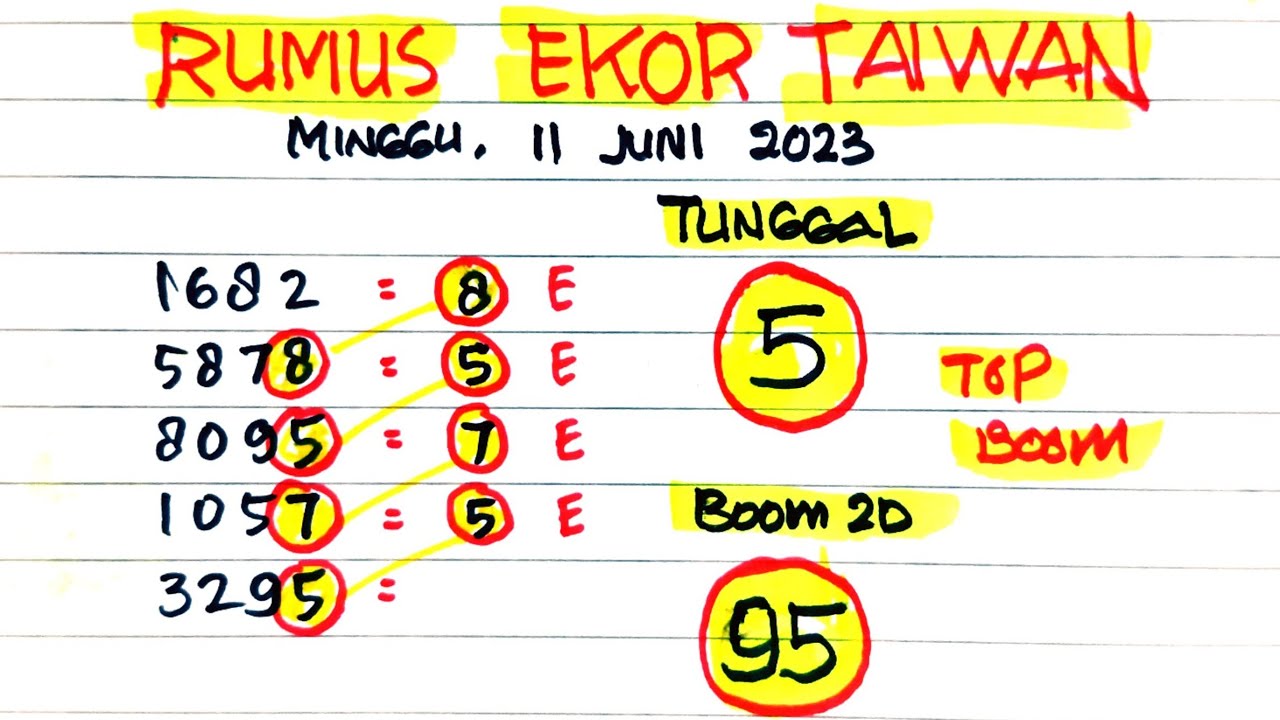 RUMUS EKOR TAIWAN
MINGGU. 11 JUNI 2023
TUNGGAL
1682 = 8 E
5
5878 = 5 E
TOP
8095 = 7 E
BOOM
1057 = 5 E
BOOM 2D
3295 =
95